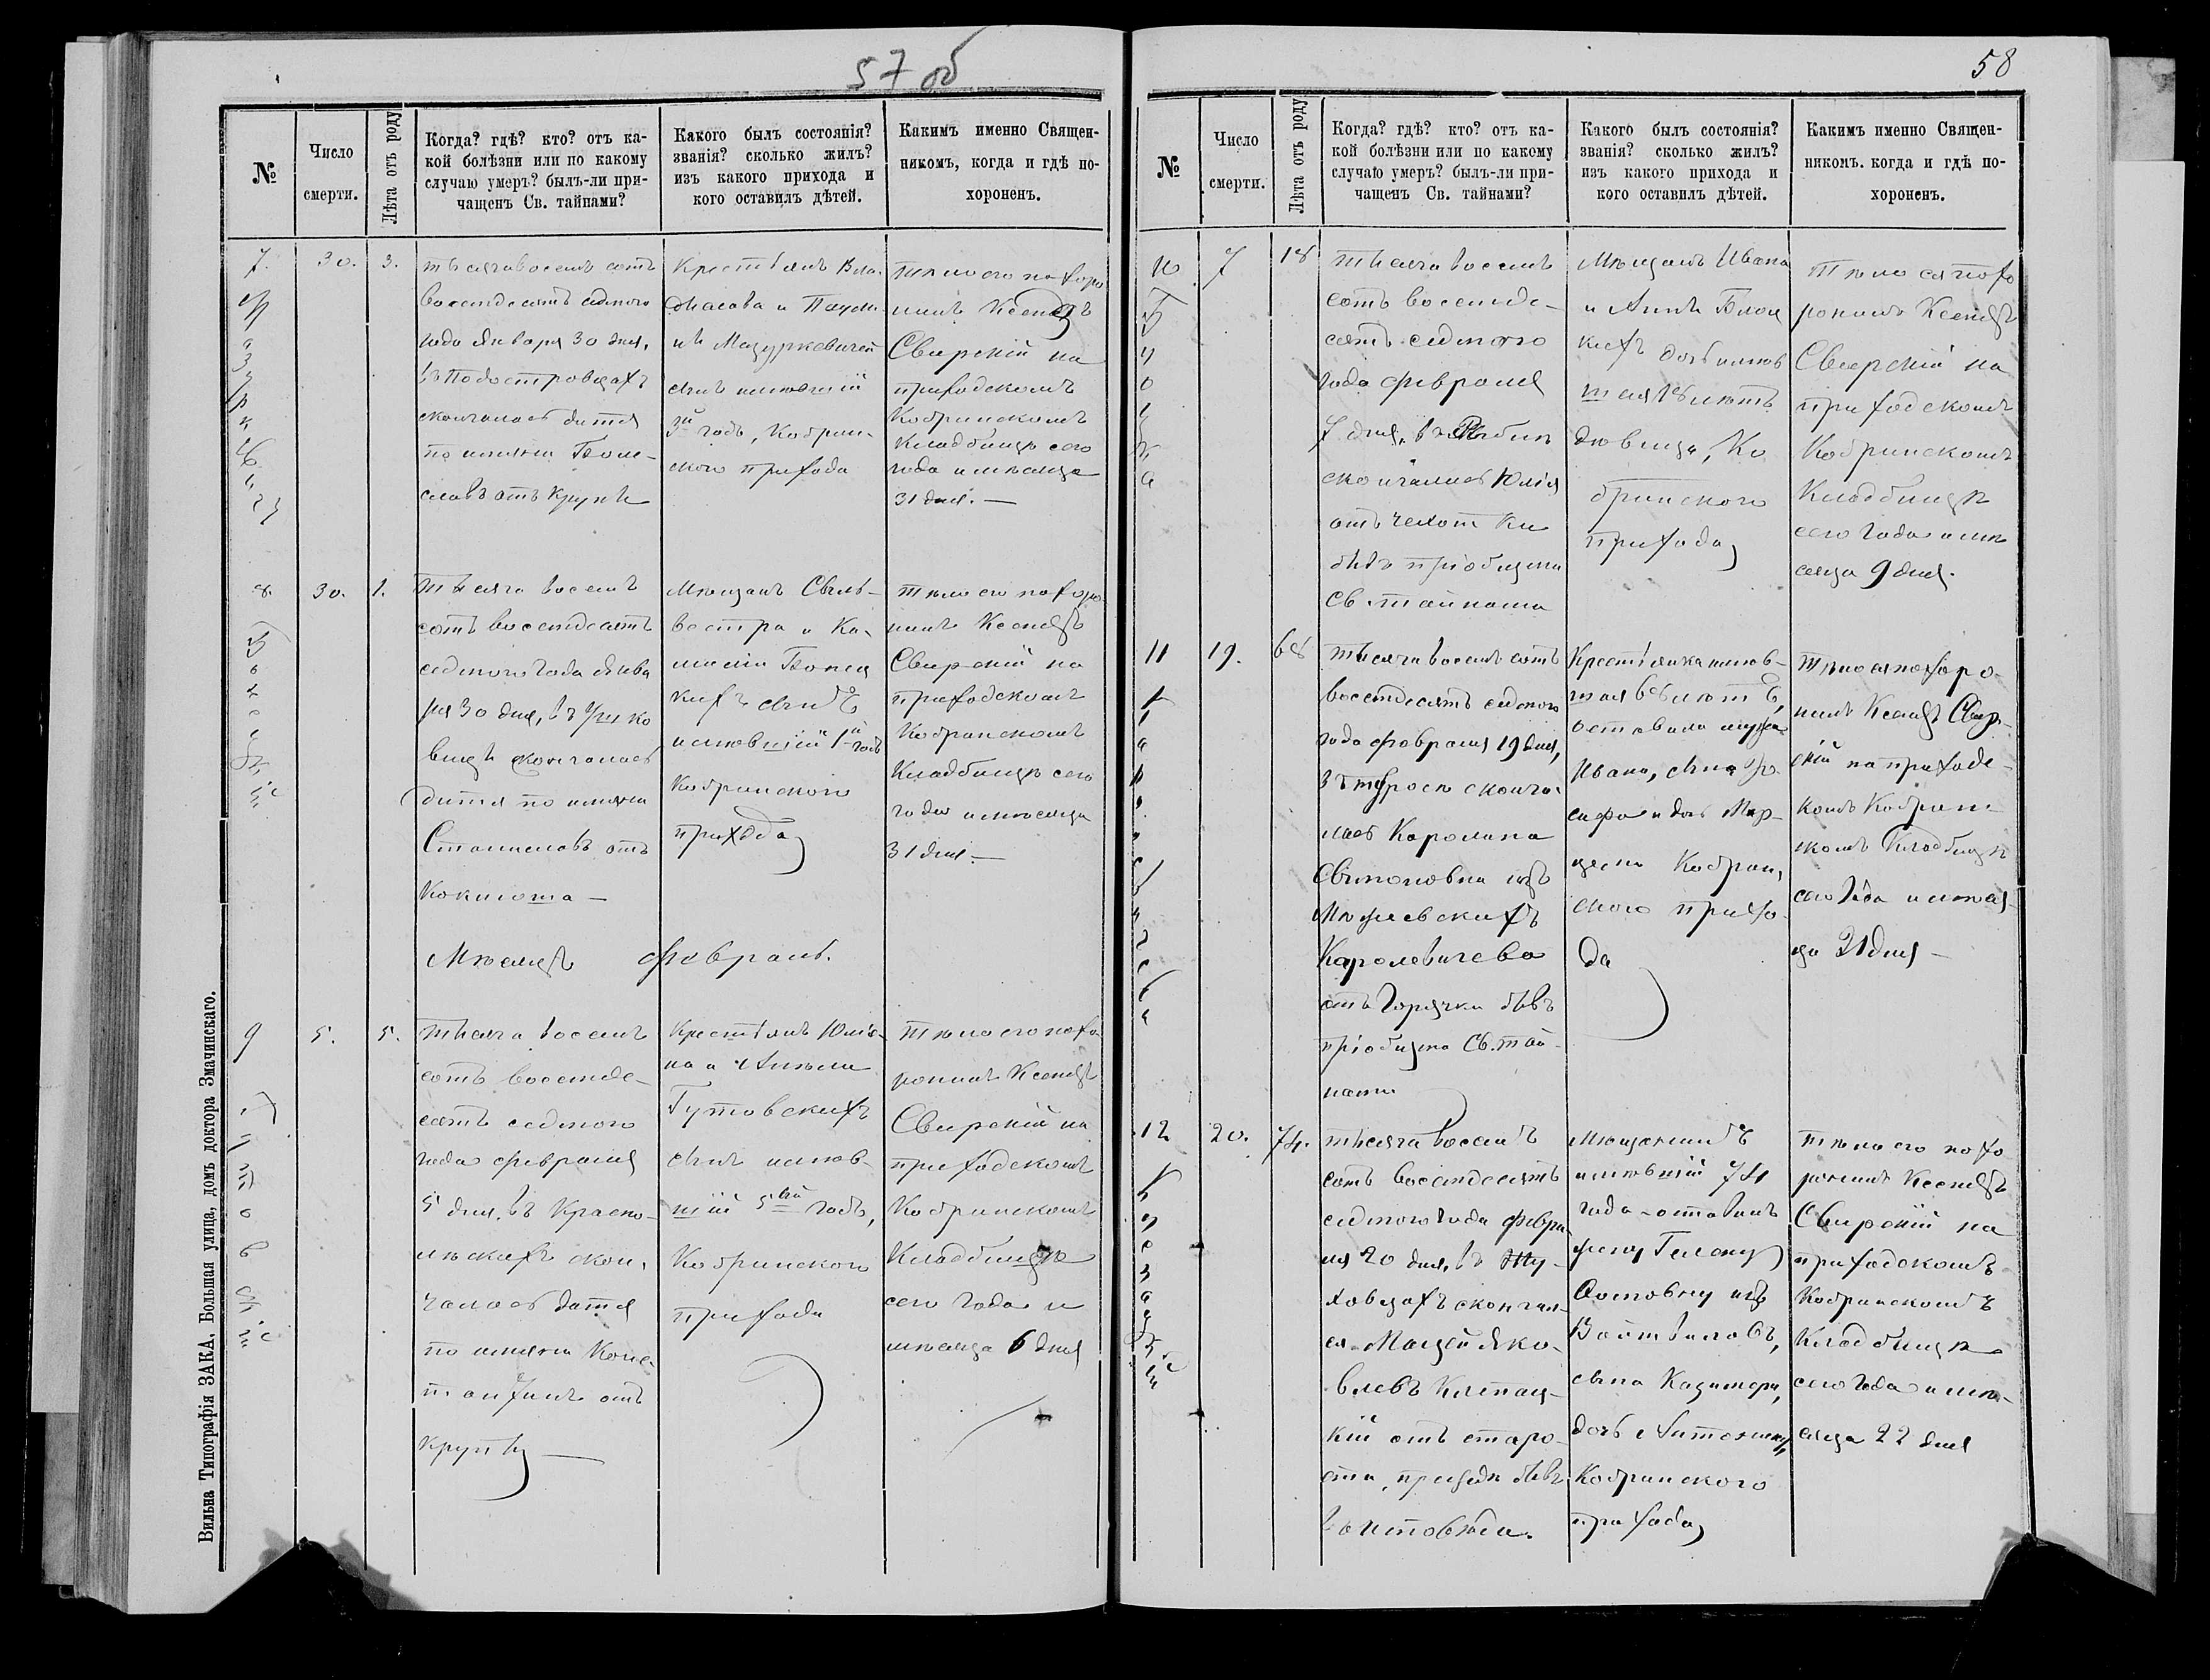 57 об
№
Число
смерти.
Лѣта отъ роду
Когда? гдѣ? кто? отъ ка-
кой болѣзни или по какому
случаю умеръ? былъ-ли при-
чащенъ Св. тайнами?
Какого былъ состоянія?
званія? сколько жилъ?
изъ какого прихода и
кого оставилъ дѣтей.
Какимъ именно Священ-
никомъ, когда и гдѣ по-
хороненъ.
7.
30.
3.
тысяча восемь сотъ
восемдесятъ седмого
года января 30 дня,
скончалось дитя
по имяни Боле-
славъ отъ крупы
Крестьянъ Вла-
и Паули-
ны Мазуркевичей
сынъ имѣвшій
3й годъ, Кобрин-
ского прихода
тѣло его похоро
нилъ Ксендзъ
Свирскій на
приходскомъ
Кобринскомъ
Кладбищѣ сего
года и мѣсяца
31 дня. —
8.
30.
1.
тысяча восемь
сотъ восемдесятъ
седмого года янва
ря 30 дня, въ
скончалось
дитя по имяни
Станиславъ отъ
Коклюша —
Мѣщанъ Сильв-
вестра и Ка-
кихъ сынъ
имѣвшій 1й годъ
Кобринского
прихода
тѣло его похоро-
нилъ Ксендзъ
Свирскій на
приходскомъ
Кобринскомъ
Кладбищѣ сего
года и мѣсяца
31 дня. —
Мѣсяцъ Февраль.
9
5.
5.
тысяча восемь
сотъ восемде-
сятъ седмого
года февраля
5 дня, въ Красно-
скон-
чалось дитя
по имяни Конс-
тантинъ отъ
крупы —
Крестьянъ Юлі-
на и Анели
Гутовскихъ
сынъ имѣв-
шій 5ый годъ,
Кобринского
прихода
тѣло его похо
ронилъ Ксендзъ
Свирскій на
приходскомъ
Кобринскомъ
Кладбищѣ
сего года и
мѣсяца 6 дня
Вильна Типографія ЗАКА, Большая улица, домъ доктора Змачинскаго.
58
№
Число
смерти.
Лѣта отъ роду
Когда? гдѣ? кто? отъ ка-
кой болѣзни или по какому
случаю умеръ? былъ-ли при-
чащенъ Св. тайнами?
Какого былъ состоянія?
званія? сколько жилъ?
изъ какого прихода и
кого оставилъ дѣтей.
Какимъ именно Священ-
никомъ. когда и гдѣ по-
хороненъ.
10
7
18
тысяча восемь
сотъ восемде-
сятъ седмого
года февраля
7 дня, въ
скончалась Юлія
отъ чехотки
бывъ пріобщена
Св. тайнами
Мѣщанъ Ивана
и Анны
кихъ дочь имѣв
шая 18 лѣтъ
дѣвица, Ко
бринского
прихода
тѣло ея похо
ронилъ Ксендзъ
Свирскій на
приходскомъ
Кобринскомъ
Кладбищѣ
сего года и мѣ
сяца 9 дня.
11
19.
68
тысяча восемь сотъ
восемдесятъ седмого
года февраля 19 дня,
сконча-
лась Каролина
изъ
Каролевичева
отъ горячки бывъ
пріобщена Св. тай-
нами
Крестьянка имѣв-
шая 68 лѣтъ,
оставила мужа
Ивана, сына Іо-
сифа и дочь Мар-
Кобрин-
ского прихо-
да
тѣло ея похоро-
нилъ Ксендзъ Свир-
скій на приход-
комъ Кобрин-
скомъ Кладбищѣ
сего года и мѣся-
ца 21 дня —
12
20.
74.
тысяча восемь
сотъ восемдесятъ
седмого года февра
ля 20 дня, въ
скончал-
ся Мацей Яко-
влевъ
кій отъ старо-
сти, прежде бывъ
Мѣщанинъ
имѣвшій 74
года оставилъ
жену Гелену
изъ
сына Казимера,
дочь Антонину,
Кобринского
прихода
тѣло его похо
ронилъ Ксендзъ
Свирскій на
приходскомъ
Кобринскомъ
Кладбищѣ
сего года и мѣ-
сяца 22 дня